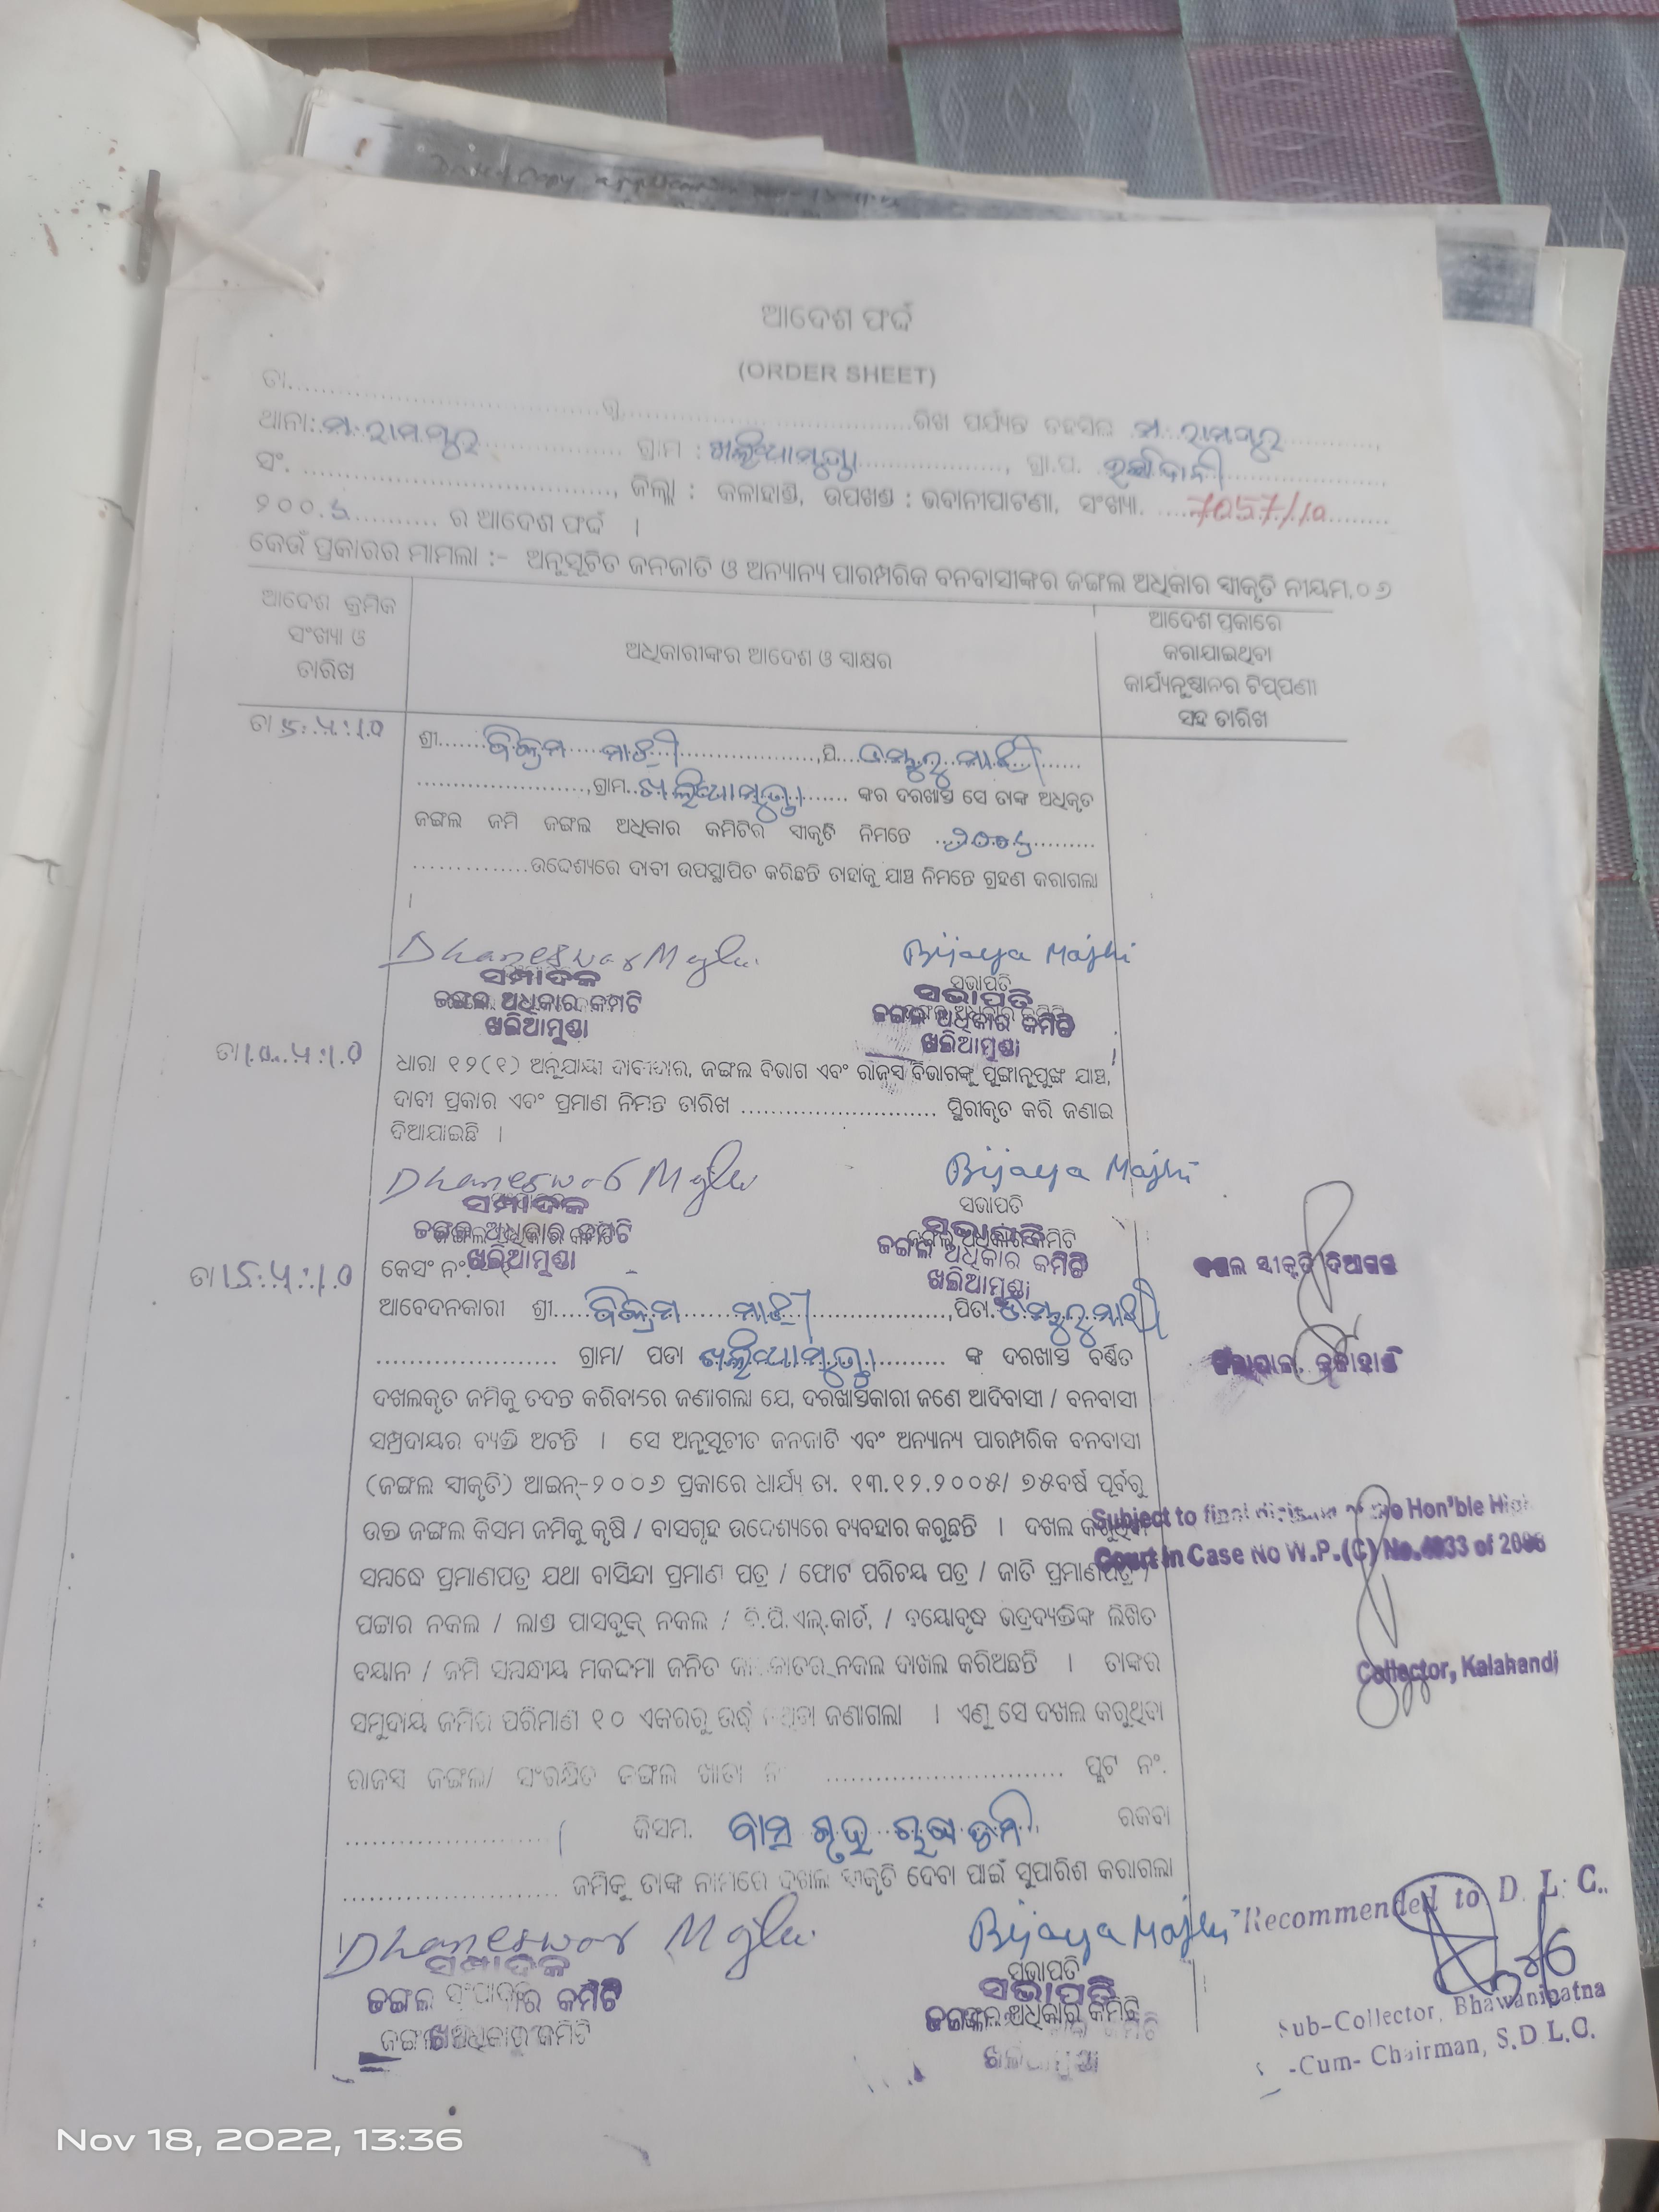 ଆଦେଶ ଫର୍ଦ୍ଦ
(ORDER SHEET)
ତା....................................ଠୁ....................................ରିଖ ପର୍ଯ୍ୟନ୍ତ ତହସିଲ ମ. ରାମପୁର
ଥାନା: ମ. ରାମପୁର ଗ୍ରାମ : ଖଲିଆମୁଣ୍ଡା, ଗ୍ରା.ପ.
ସଂ. ...................................., ଜିଲ୍ଲା : କଳାହାଣ୍ଡି, ଉପଖଣ୍ଡ : ଭବାନୀପାଟଣା, ସଂଖ୍ୟା. 7057/10
୨୦୦ ........... ର ଆଦେଶ ଫର୍ଦ୍ଦ ।
କେଉଁ ପ୍ରକାରର ମାମଲା :- ଅନୁସୂଚିତ ଜନଜାତି ଓ ଅନ୍ୟାନ୍ୟ ପାରମ୍ପରିକ ବନବାସୀଙ୍କର ଜଙ୍ଗଲ ଅଧିକାର ସ୍ୱୀକୃତି ନୀୟମ.୦୬
ଆଦେଶ କ୍ରମିକ ସଂଖ୍ୟା ଓ ତାରିଖ
ଅଧିକାରୀଙ୍କର ଆଦେଶ ଓ ସ୍ୱାକ୍ଷର
ଆଦେଶ ପ୍ରକାରେ କରାଯାଇଥିବା କାର୍ଯ୍ୟନୁଷ୍ଠାନର ଟିପ୍ପଣୀ ସହ ତାରିଖ
ତା 5.4.10
ଶ୍ରୀ ବିକ୍ରମ ମାଝୀ ,ପି. ଡମ୍ବୁରୁ ମାଝୀ
,ଗ୍ରାମ ଖଲିଆମୁଣ୍ଡା ଙ୍କର ଦରଖାସ୍ତ ସେ ତାଙ୍କ ଅଧିକୃତ
ଜଙ୍ଗଲ ଜମି ଜଙ୍ଗଲ ଅଧିକାର କମିଟିର ସ୍ୱୀକୃତି ନିମନ୍ତେ
..............ଉଦ୍ଦେଶ୍ୟରେ ଦାବୀ ଉପସ୍ଥାପିତ କରିଛନ୍ତି ତାହାକୁ ଯାଞ୍ଚ ନିମନ୍ତେ ଗ୍ରହଣ କରାଗଲା
।
Dhaneswar Majhi Bijaya Majhi
ସମ୍ପାଦକ ସଭାପତି
ଜଙ୍ଗଲ ଅଧିକାର କମିଟି ଜଙ୍ଗଲ ଅଧିକାର କମିଟି
ଖଲିଆମୁଣ୍ଡା ଖଲିଆମୁଣ୍ଡା
ତା 10.4.10
ଧାରା ୧୨(୧) ଅନୁଯାୟୀ ଦାବୀଦାର, ଜଙ୍ଗଲ ବିଭାଗ ଏବଂ ରାଜସ୍ୱ ବିଭାଗଙ୍କୁ ପୁଙ୍ଖାନୁପୁଙ୍ଖ ଯାଞ୍ଚ,
ଦାବୀ ପ୍ରକାର ଏବଂ ପ୍ରମାଣ ନିମନ୍ତ ତାରିଖ ........................... ସ୍ଥିରୀକୃତ କରି ଜଣାଇ
ଦିଆଯାଇଛି ।
Dhaneswar Majhi Bijaya Majhi
ସମ୍ପାଦକ ସଭାପତି
ଜଙ୍ଗଲ ଅଧିକାର କମିଟି ଜଙ୍ଗଲ ଅଧିକାର କମିଟି
ଖଲିଆମୁଣ୍ଡା ଖଲିଆମୁଣ୍ଡା
ତା 15.4.10
କେସଂ ନଂ.
ଆବେଦନକାରୀ ଶ୍ରୀ ବିକ୍ରମ ମାଝୀ ,ପିତା. ଡମ୍ବୁରୁ ମାଝୀ
..................... ଗ୍ରାମ/ ପଡା ଖଲିଆମୁଣ୍ଡା ଙ୍କ ଦରଖାସ୍ତ ବର୍ଣ୍ଣିତ
ଦଖଲକୃତ ଜମିକୁ ତଦନ୍ତ କରିବାରେ ଜଣାଗଲା ଯେ, ଦରଖାସ୍ତକାରୀ ଜଣେ ଆଦିବାସୀ / ବନବାସୀ
ସମ୍ପ୍ରଦାୟର ବ୍ୟକ୍ତି ଅଟନ୍ତି । ସେ ଅନୁସୂଚୀତ ଜନଜାତି ଏବଂ ଅନ୍ୟାନ୍ୟ ପାରମ୍ପରିକ ବନବାସୀ
(ଜଙ୍ଗଲ ସ୍ୱୀକୃତି) ଆଇନ୍-୨୦୦୬ ପ୍ରକାରେ ଧାର୍ଯ୍ୟ ତା. ୧୩.୧୨.୨୦୦୫/ ୭୫ବର୍ଷ ପୂର୍ବରୁ
ଉକ୍ତ ଜଙ୍ଗଲ କିସମ ଜମିକୁ କୃଷି / ବାସଗୃହ ଉଦ୍ଦେଶ୍ୟରେ ବ୍ୟବହାର କରୁଛନ୍ତି । ଦଖଲ କରୁଥିବା
ସମ୍ବନ୍ଧେ ପ୍ରମାଣପତ୍ର ଯଥା ବାସିନ୍ଦା ପ୍ରମାଣ ପତ୍ର / ଫୋଟ ପରିଚୟ ପତ୍ର / ଜାତି ପ୍ରମାଣପତ୍ର /
ପଟ୍ଟାର ନକଲ / ଲାଣ୍ଡ ପାସବୁକ୍ ନକଲ / ବି.ପି.ଏଲ୍.କାର୍ଡ, / ବୟୋବୃଦ୍ଧ ଭଦ୍ରବ୍ୟକ୍ତିଙ୍କ ଲିଖିତ
ବୟାନ / ଜମି ସମ୍ବନ୍ଧୀୟ ମକଦ୍ଦମା ଜନିତ ନକଲ ଦାଖଲ କରିଅଛନ୍ତି । ତାଙ୍କର
ସମୁଦାୟ ଜମିର ପରିମାଣ ୧୦ ଏକରରୁ ଉର୍ଦ୍ଧ୍ୱ ଜଣାଗଲା । ଏଣୁ ସେ ଦଖଲ କରୁଥିବା
ରାଜସ୍ୱ ଜଙ୍ଗଲ/ ସଂରକ୍ଷିତ ଜଙ୍ଗଲ ଖାତା ନଂ ........................... ପ୍ଲଟ ନଂ.
........................... କିସମ. ରକବା
........................... ଜମିକୁ ତାଙ୍କ ନାମରେ ଦଖଲ ସ୍ୱୀକୃତି ଦେବା ପାଇଁ ସୁପାରିଶ କରାଗଲା
Dhaneswar Majhi Bijaya Majhi
ସମ୍ପାଦକ ସଭାପତି
ଜଙ୍ଗଲ ଅଧିକାର କମିଟି ଜଙ୍ଗଲ ଅଧିକାର କମିଟି
ଖଲିଆମୁଣ୍ଡା
ଜଙ୍ଗଲ ସ୍ୱୀକୃତି ଦିଆଗଲା
ଜିଲ୍ଲାପାଳ, କଳାହାଣ୍ଡି
Subject to final decision of the Hon'ble High
Court in Case No W.P.(C) No.4933 of 2008
Collector, Kalahandi
Recommended to D. L. C.
Sub-Collector, Bhawanipatna
-Cum- Chairman, S.D.L.C.
Nov 18, 2022, 13:36